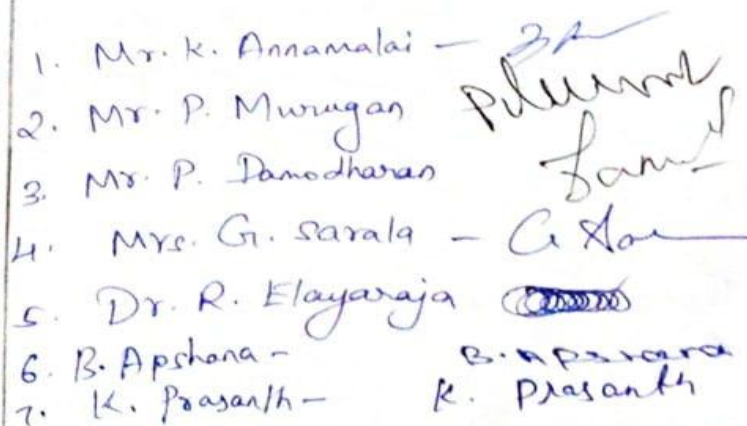 1. Mr. K. Annamalai -
2. Mr. P. Murugan
3. Mr. P. Damodharan
4. Mrs. G. Sarala - G
5. Dr. R. Elayaraja
6. B. Apshana - B. Apsrara
7. K. Prasanth - K. Prasanth